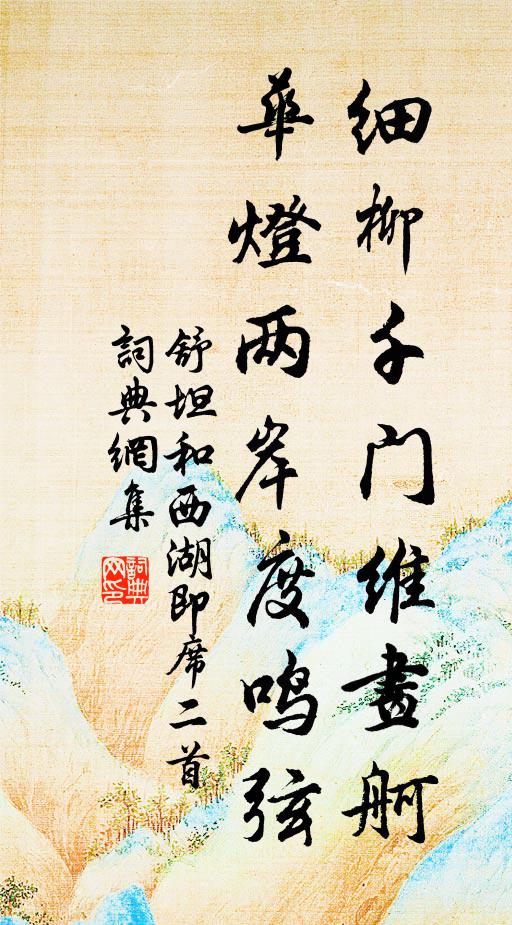 细柳千门维畫舸
華燈两岸度鸣弦
舒坦和西湖即席二首
詞典網集
詞典网印